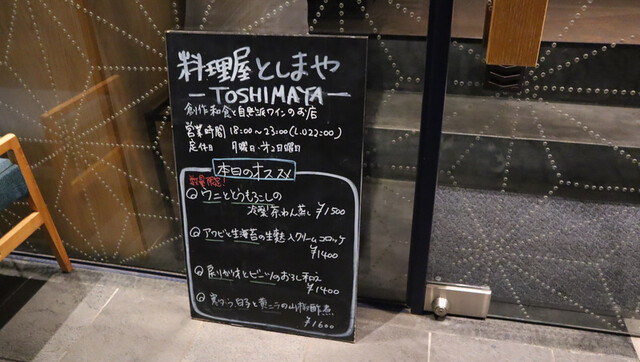 料理屋としまや
—TOSHIMAYA—
創作和食と自然派ワインのお店
営業時間 18:00〜23:00(L.O22:00)
定休日 月曜日・第2日曜日
本日のオススメ
数量限定!
ウニととうもろこしの
冷製茶わん蒸し ¥1500
アワビと生海苔の生麩入クリームコロッケ
¥1400
戻りカツオとビーツのおろし和え
¥1400
白子と黄ニラの山椒酢煮
¥1600